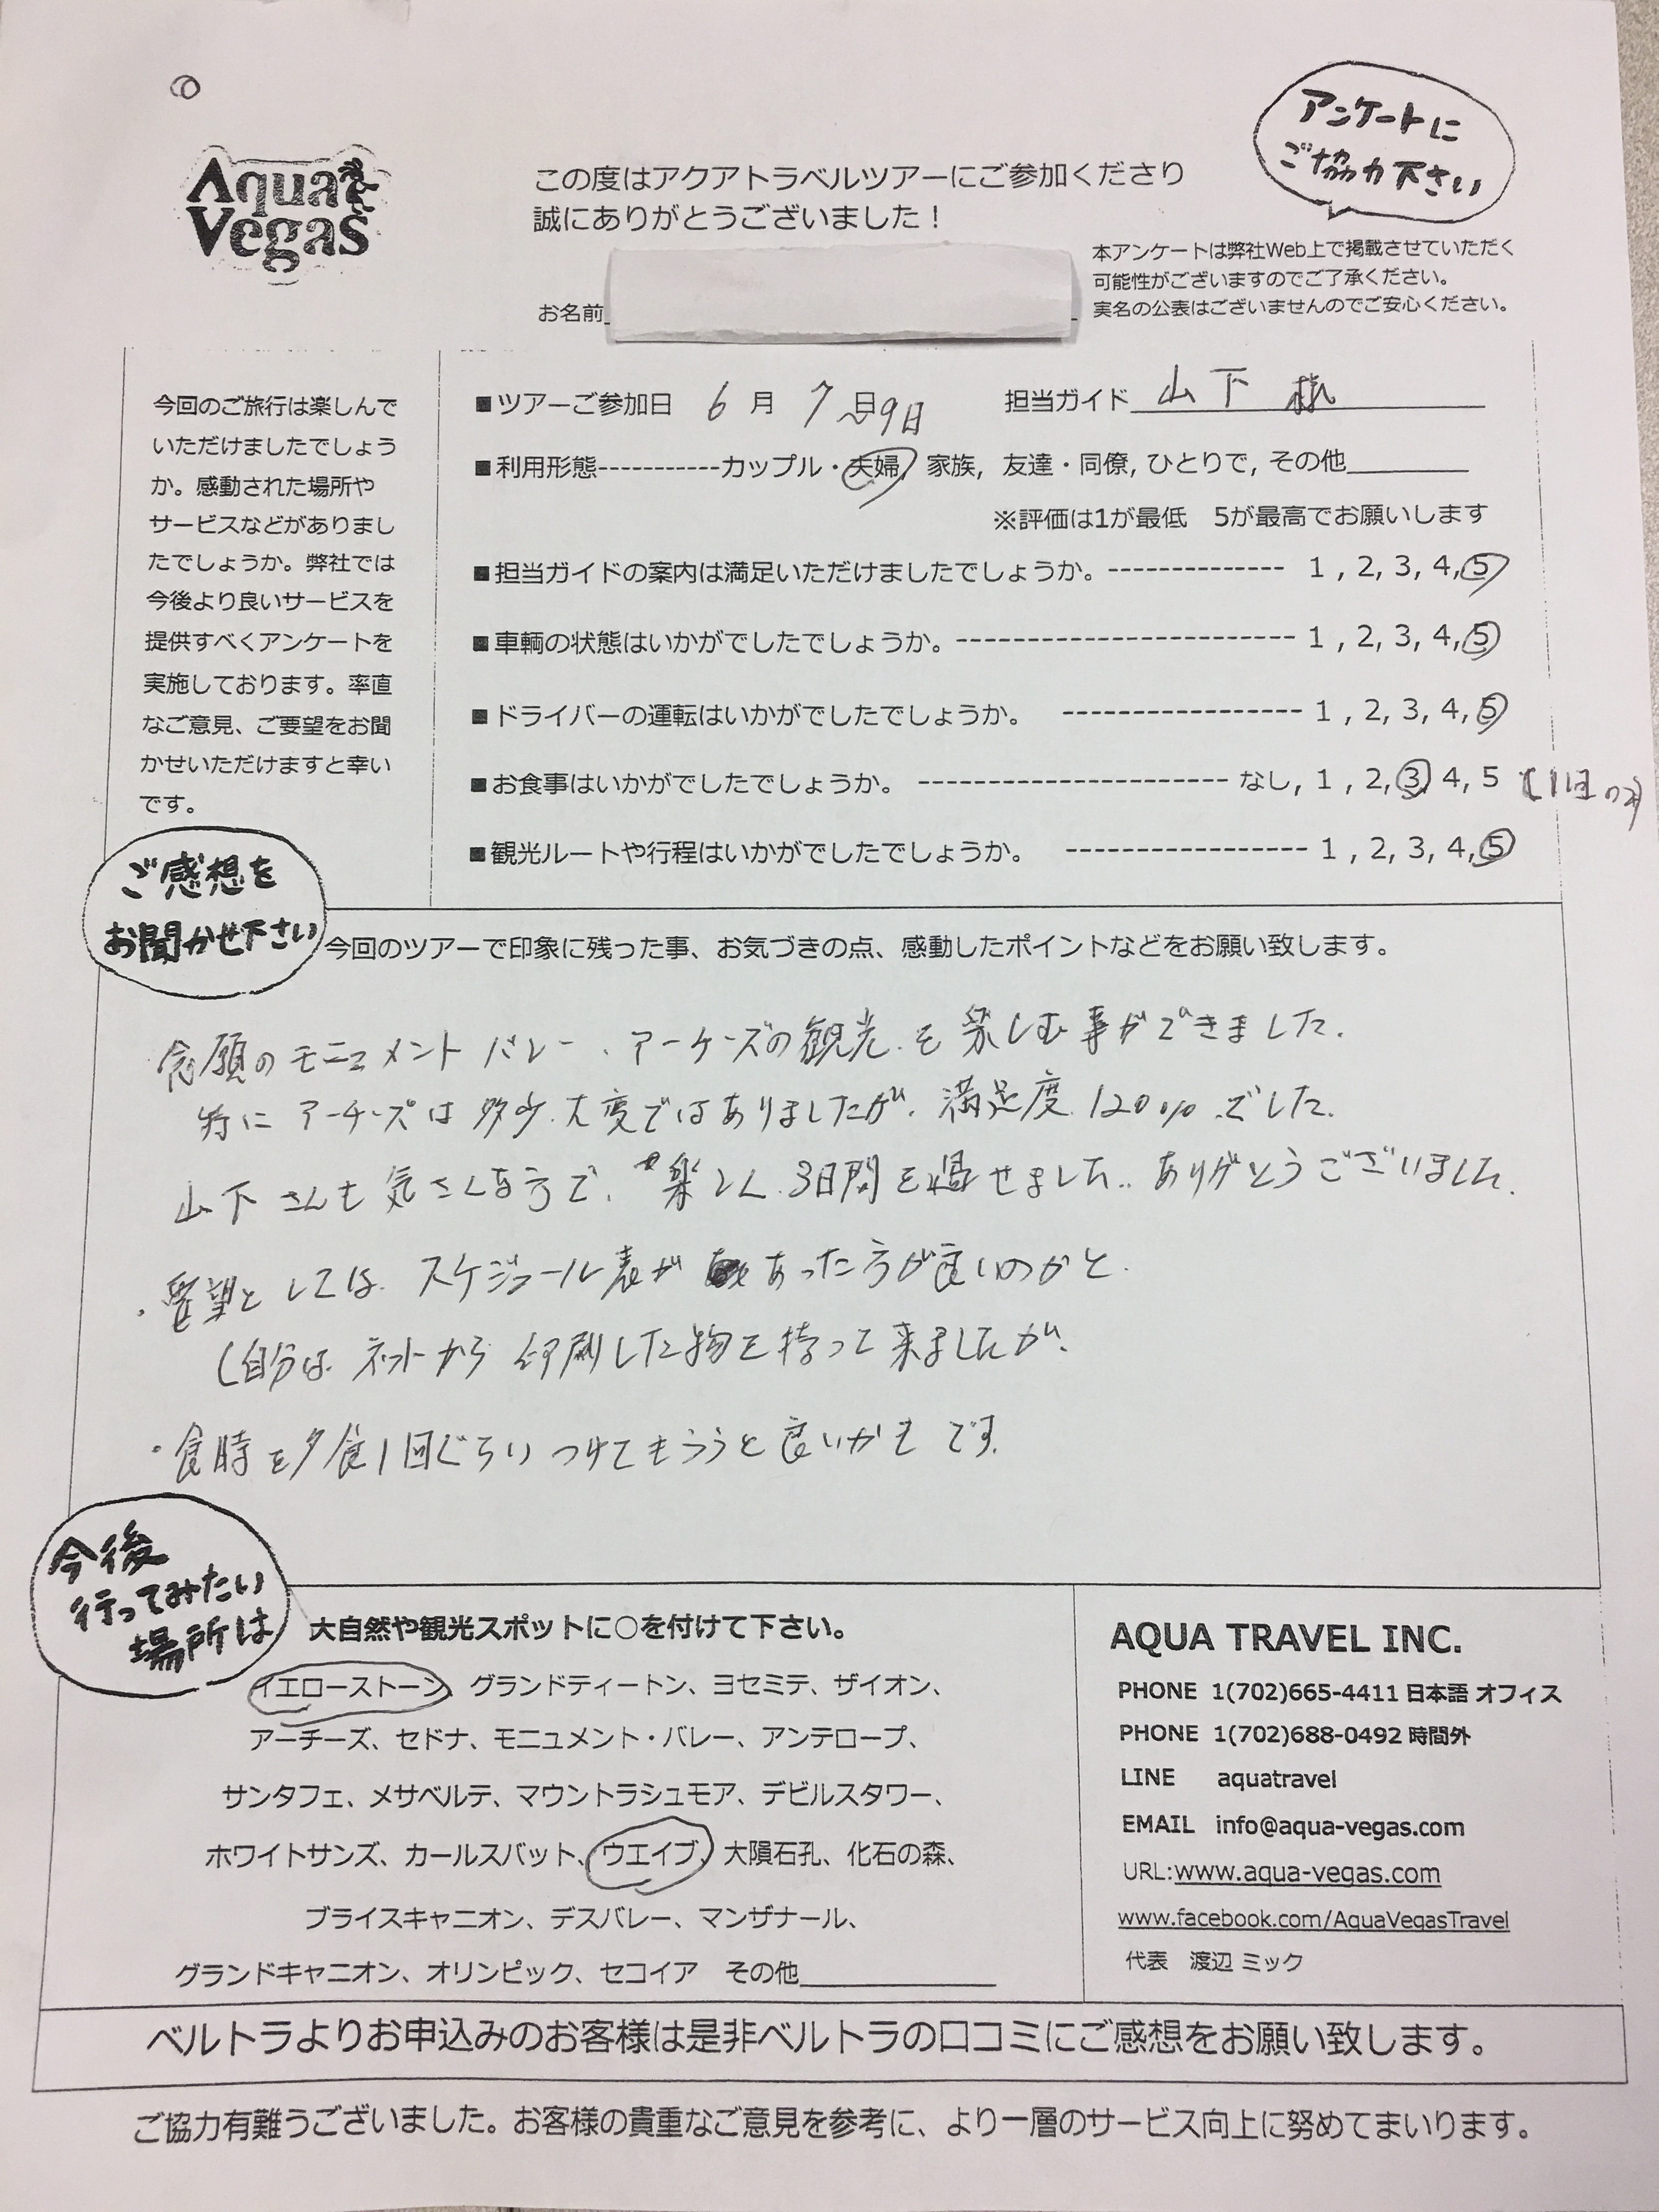 アンケートに
ご協力下さい
Aqua
Vegas
この度はアクアトラベルツアーにご参加くださり
誠にありがとうございました！
本アンケートは弊社Web上で掲載させていただく
可能性がございますのでご了承ください。
実名の公表はございませんのでご安心ください。
お名前
今回のご旅行は楽しんで
いただけましたでしょう
か。感動された場所や
サービスなどがありまし
たでしょうか。弊社では
今後より良いサービスを
提供すべくアンケートを
実施しております。率直
なご意見、ご要望をお聞
かせいただけますと幸い
です。
■ツアーご参加日 6 月 7 日 9日 担当ガイド 山下 様
■利用形態-----------カップル・夫婦, 家族, 友達・同僚, ひとりで, その他
※評価は1が最低 5が最高でお願いします
■担当ガイドの案内は満足いただけましたでしょうか。-------------- 1 , 2, 3, 4, 5
■車輌の状態はいかがでしたでしょうか。--------------------------- 1 , 2, 3, 4, 5
■ドライバーの運転はいかがでしたでしょうか。 ------------------- 1 , 2, 3, 4, 5
■お食事はいかがでしたでしょうか。------------------------- なし, 1 , 2, 3, 4, 5
■観光ルートや行程はいかがでしたでしょうか。 ------------------- 1 , 2, 3, 4, 5
ご感想を
お聞かせ下さい
今回のツアーで印象に残った事、お気づきの点、感動したポイントなどをお願い致します。
念願のモニュメントバレー、アーケーズの観光を楽しむ事ができました.
特にアーチーズは多少大変ではありましたが、満足度120%でした.
山下さんも気さくな方で、楽しく3日間を過せました.. ありがとうございました.
・要望としては スケジュール表が あった方が良いのかと.
(自分は ネットから印刷した物を持って来ましたが、
・食時を夕食1回ぐらい つけてもらうと良いかも です.
今後
行ってみたい
場所は
大自然や観光スポットに○を付けて下さい。
イエローストーン、グランドティートン、ヨセミテ、ザイオン、
アーチーズ、セドナ、モニュメント・バレー、アンテロープ、
サンタフェ、メサベルテ、マウントラシュモア、デビルスタワー、
ホワイトサンズ、カールスバット、ウエイブ、大隕石孔、化石の森、
ブライスキャニオン、デスバレー、マンザナール、
グランドキャニオン、オリンピック、セコイア その他
AQUA TRAVEL INC.
PHONE 1(702)665-4411 日本語 オフィス
PHONE 1(702)688-0492 時間外
LINE aquatravel
EMAIL info@aqua-vegas.com
URL:www.aqua-vegas.com
www.facebook.com/AquaVegasTravel
代表 渡辺 ミック
ベルトラよりお申込みのお客様は是非ベルトラの口コミにご感想をお願い致します。
ご協力有難うございました。お客様の貴重なご意見を参考に、より一層のサービス向上に努めてまいります。